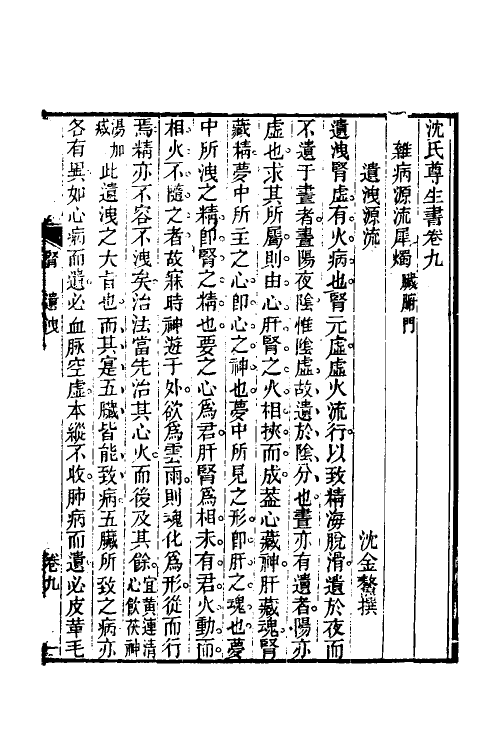 沈氏尊生書卷九
雜病源流犀燭臟腑門　沈金鰲撰
遺洩源流
遺洩腎虛有火病也腎元虛虛火流行以致精海脫滑遺於夜而
不遺于晝者晝陽夜陰惟陰虛故遺於陰分也晝亦有遺者陽亦
虛也求其所屬則由心肝腎之火相挾而成蓋心藏神肝藏魂腎
藏精夢中所主之心卽心之神也夢中所見之形卽肝之魂也夢
中所洩之精卽腎之精也要之心爲君肝腎爲相未有君火動而
相火不隨之者故寐時神遊于外欲爲雲雨則魂化爲形從而行
焉精亦不容不洩矣治法當先治其心火而後及其餘宜黃連清心飲茯神
湯加減此遺洩之大旨也而其寔五臟皆能致病五臟所致之病亦
各有異如心病而遺必血脉空虛本縱不收肺病而遺必皮革毛
腎　遺洩　卷九　一